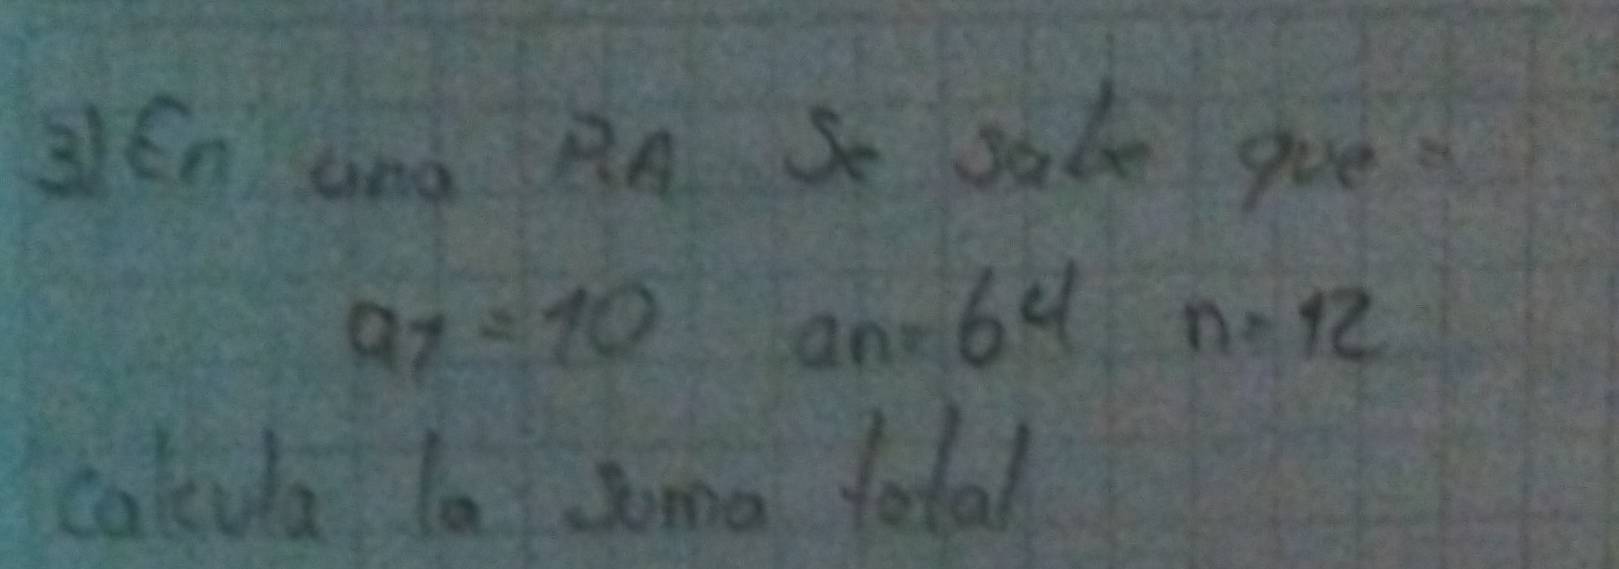 3) En una P.A Se sabe que=
a1 = 10 an= 64 n= 12
calcula la suma total